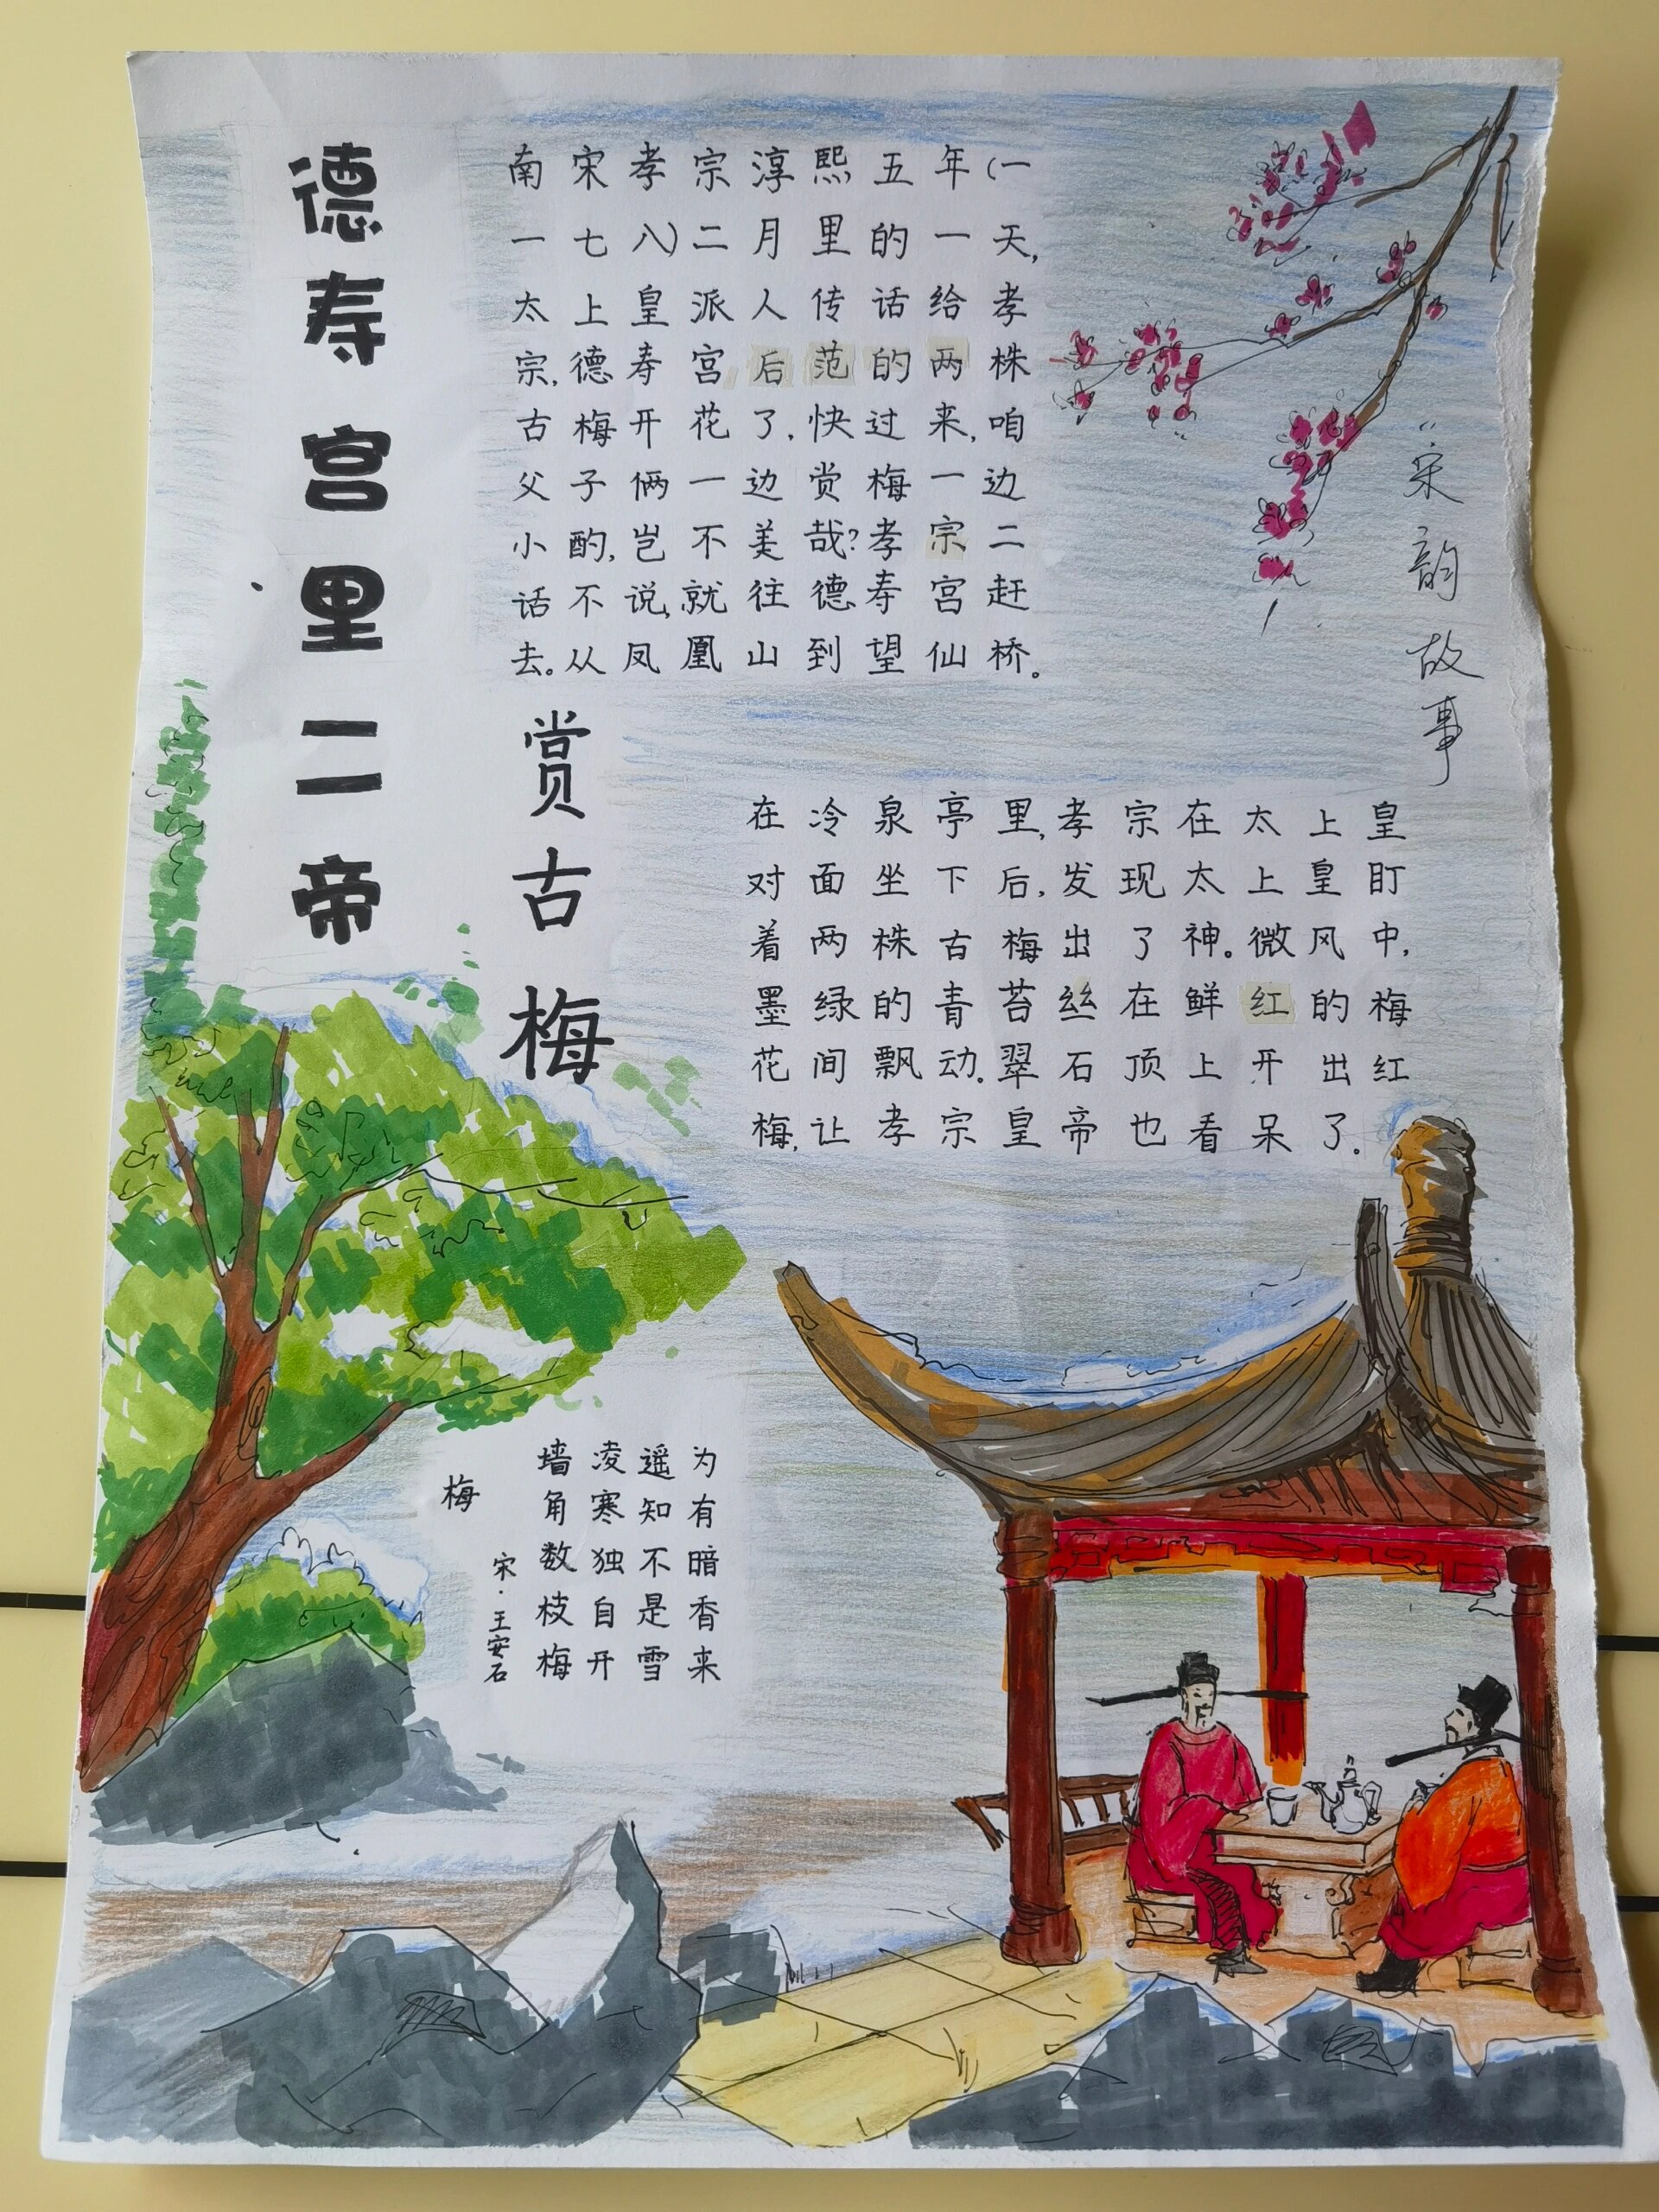 德寿宫里二帝
赏古梅
南宋孝宗淳熙五年(一
一七八)二月里的一天,
太上皇派人传话给孝
宗,德寿宫后范的两株
古梅开花了,快过来,咱
父子俩一边赏梅一边
小酌,岂不美哉?孝宗二
话不说,就往德寿宫赶
去。从凤凰山到望仙桥。
在冷泉亭里,孝宗在太上皇
对面坐下后,发现太上皇盯
着两株古梅出了神。微风中,
墨绿的青苔丝在鲜红的梅
花间飘动。翠石顶上开出红
梅,让孝宗皇帝也看呆了。
“宋韵故事
梅
宋·王安石
墙角数枝梅
凌寒独自开
遥知不是雪
为有暗香来